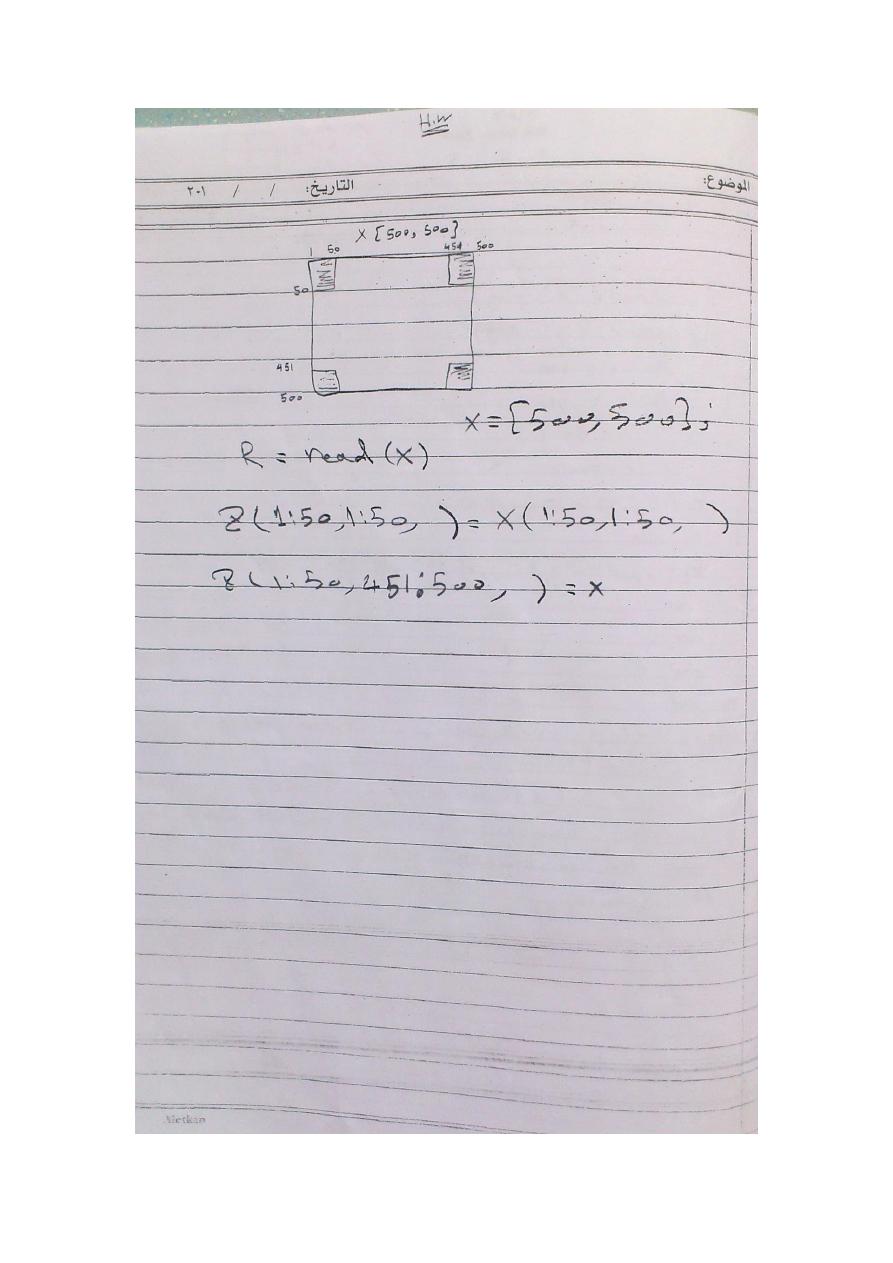 H.W
الموضوع: التاريخ: / / ٢٠١
X [500, 500]
1 50 451 500
50
451
500
X = [500, 500];
R = read (X)
Z (1:50, 1:50, ) = X (1:50, 1:50, )
Z (1:50, 451:500, ) = X